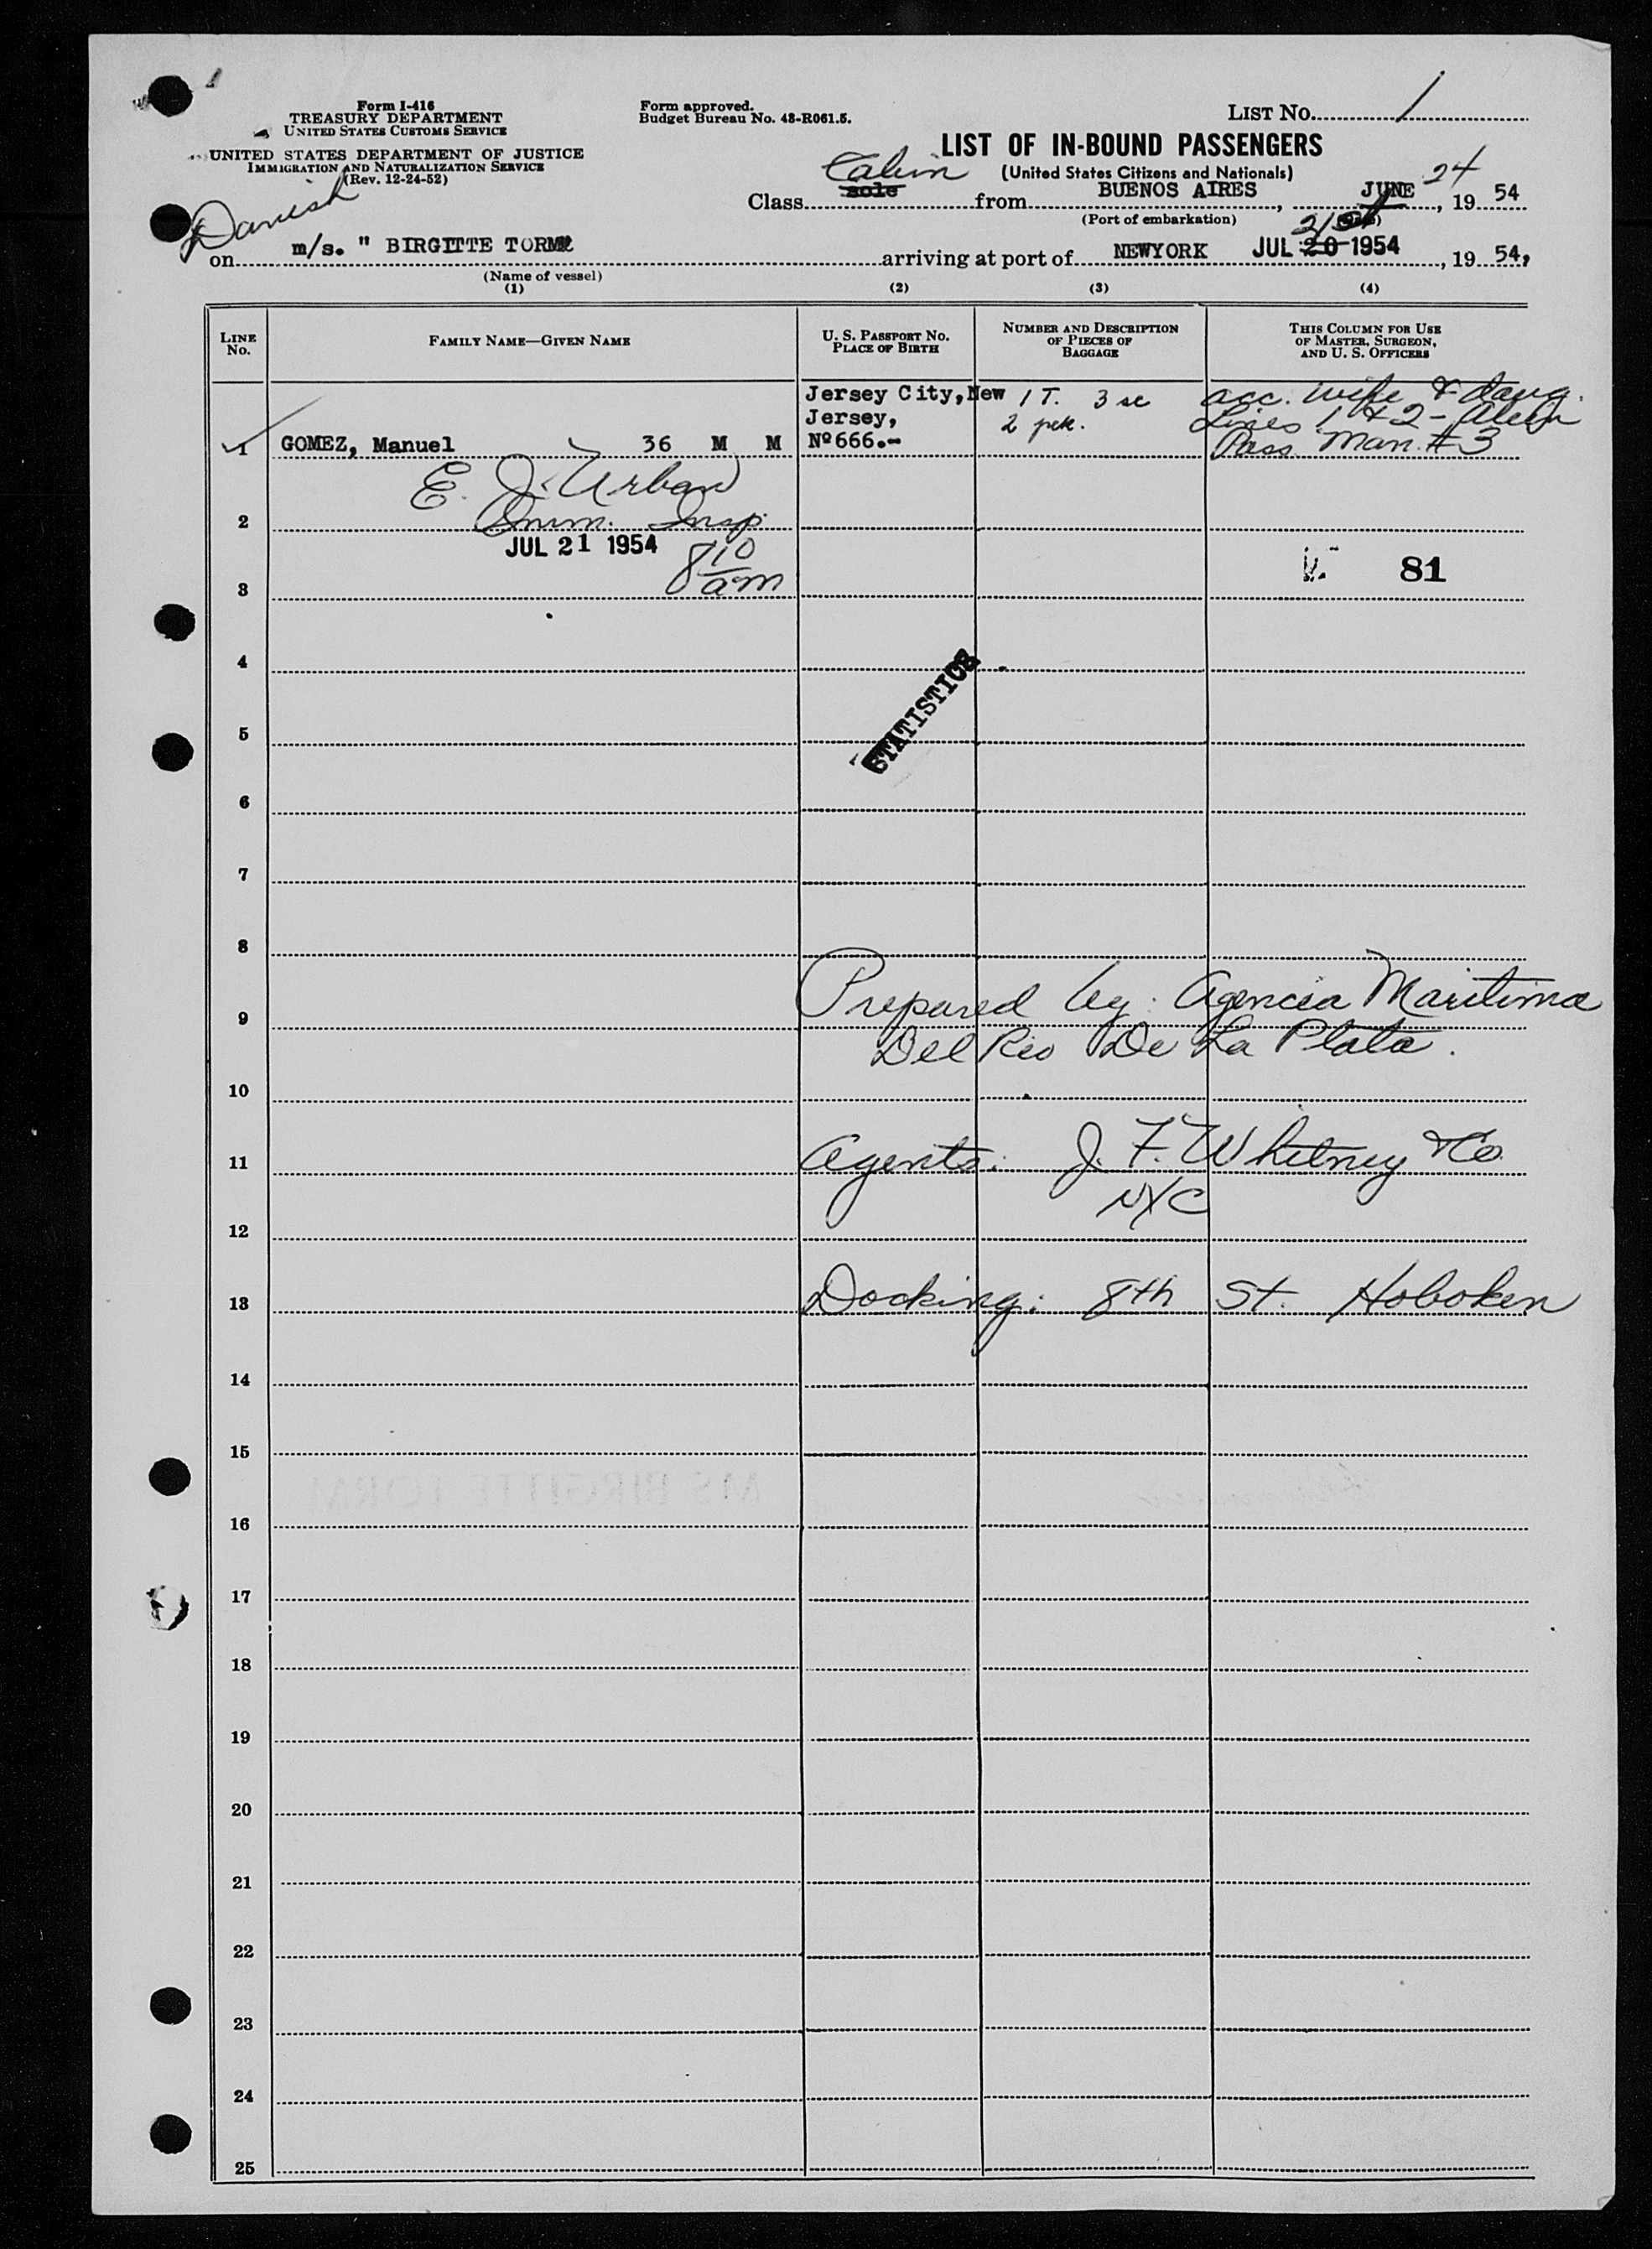 Form I-416
TREASURY DEPARTMENT
UNITED STATES CUSTOMS SERVICE
UNITED STATES DEPARTMENT OF JUSTICE
IMMIGRATION AND NATURALIZATION SERVICE
(Rev. 12-24-52)
Form approved.
Budget Bureau No. 43-R061.5.
LIST No. 1
LIST OF IN-BOUND PASSENGERS
(United States Citizens and Nationals)
Class sole Cabin from BUENOS AIRES, JUNE 24, 19 54
(Port of embarkation)
Danish
on m/s. " BIRGITTE TORM arriving at port of NEWYORK JUL 20 1954 21st, 19 54,
(Name of vessel)
(1) (2) (3) (4)
LINE No.
FAMILY NAME—GIVEN NAME
U. S. PASSPORT NO.
PLACE OF BIRTH
NUMBER AND DESCRIPTION
OF PIECES OF
BAGGAGE
THIS COLUMN FOR USE
OF MASTER, SURGEON,
AND U. S. OFFICERS
Jersey City, New 1 T. 3 sc acc. wife & daug.
Jersey, 2 pck. Lines 1 + 2 - Alien
1 GOMEZ, Manuel 36 M M Nº 666.- Pass. Man. # 3
E. J. Urban
2 Imm. Insp.
JUL 21 1954 8 10 am
3 81
4
STATISTICS
5
6
7
8
Prepared by: Agencia Maritima
9
Del Rio De La Plata.
10
11 Agents: J. F. Whitney & Co.
NYC
12
13 Docking: 8th St. Hoboken
14
15
MS BIRGITTE TORM
16
17
18
19
20
21
22
23
24
25